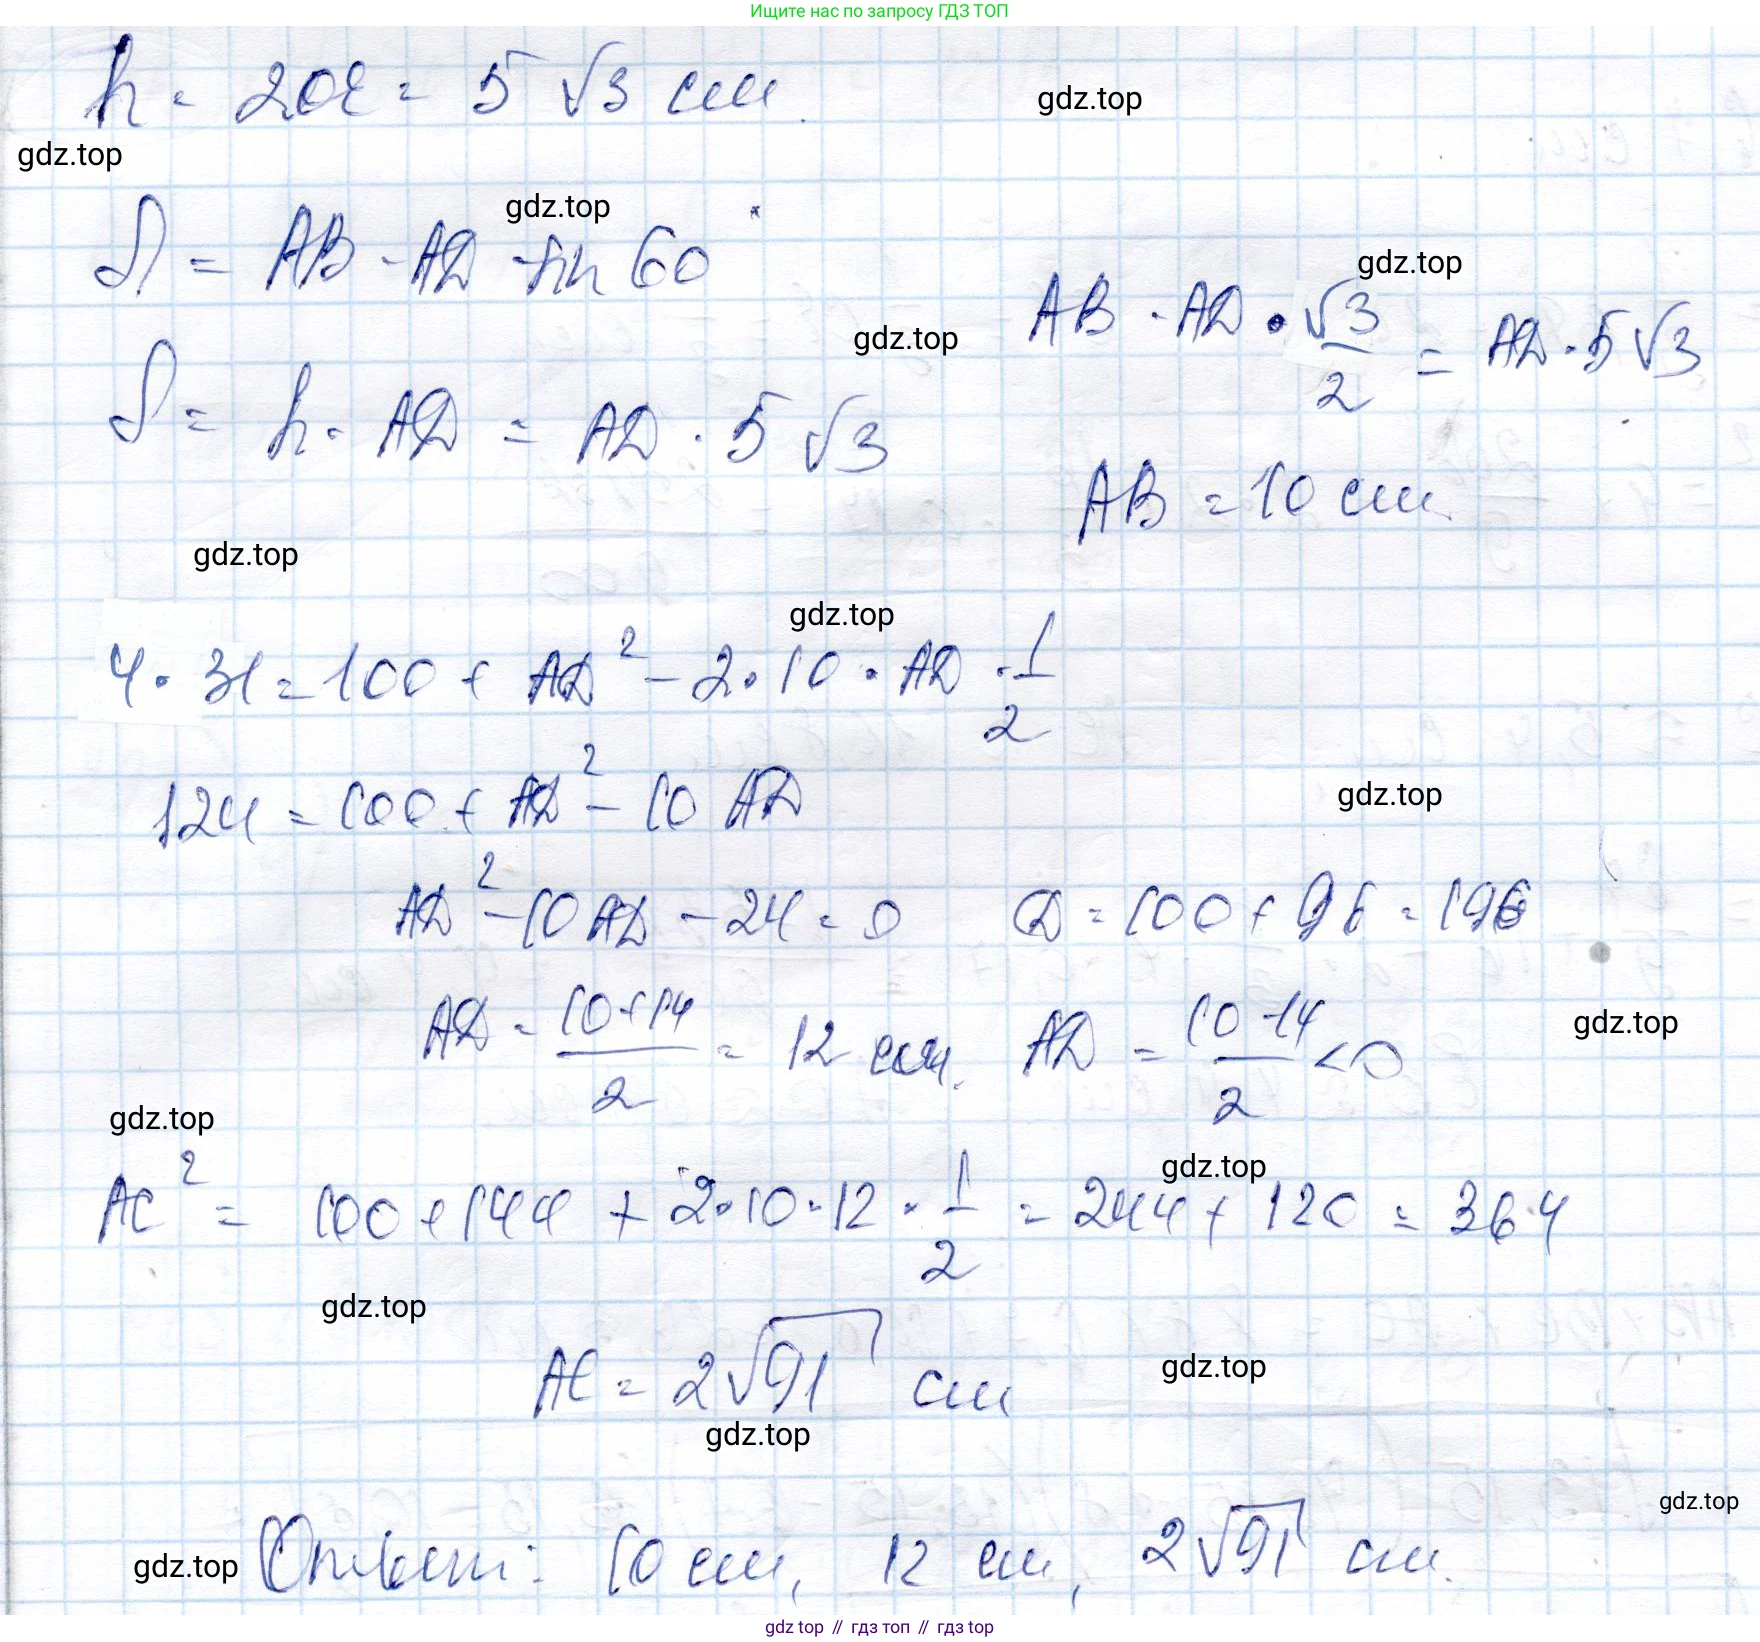 Ищите нас по запросу ГДЗ ТОП
h = 2OE = 5√3 см.
gdz.top
gdz.top
gdz.top
S = AB · AD · sin 60°
gdz.top
AB · AD · √3/2 = AD · 5√3
gdz.top
S = h · AD = AD · 5√3
AB = 10 см
gdz.top
gdz.top
4 · 31 = 100 + AD² - 2 · 10 · AD · 1/2
124 = 100 + AD² - 10 AD
gdz.top
AD² - 10AD - 24 = 0 D = 100 + 96 = 196
AD = (10+14)/2 = 12 см. AD = (10-14)/2 < 0
gdz.top
gdz.top
gdz.top
AC² = 100 + 144 + 2·10·12 · 1/2 = 244 + 120 = 364
gdz.top
AC = 2√91 см
gdz.top
gdz.top
gdz.top
Ответ: 10 см, 12 см, 2√91 см.
gdz.top
gdz top // гдз топ // gdz top